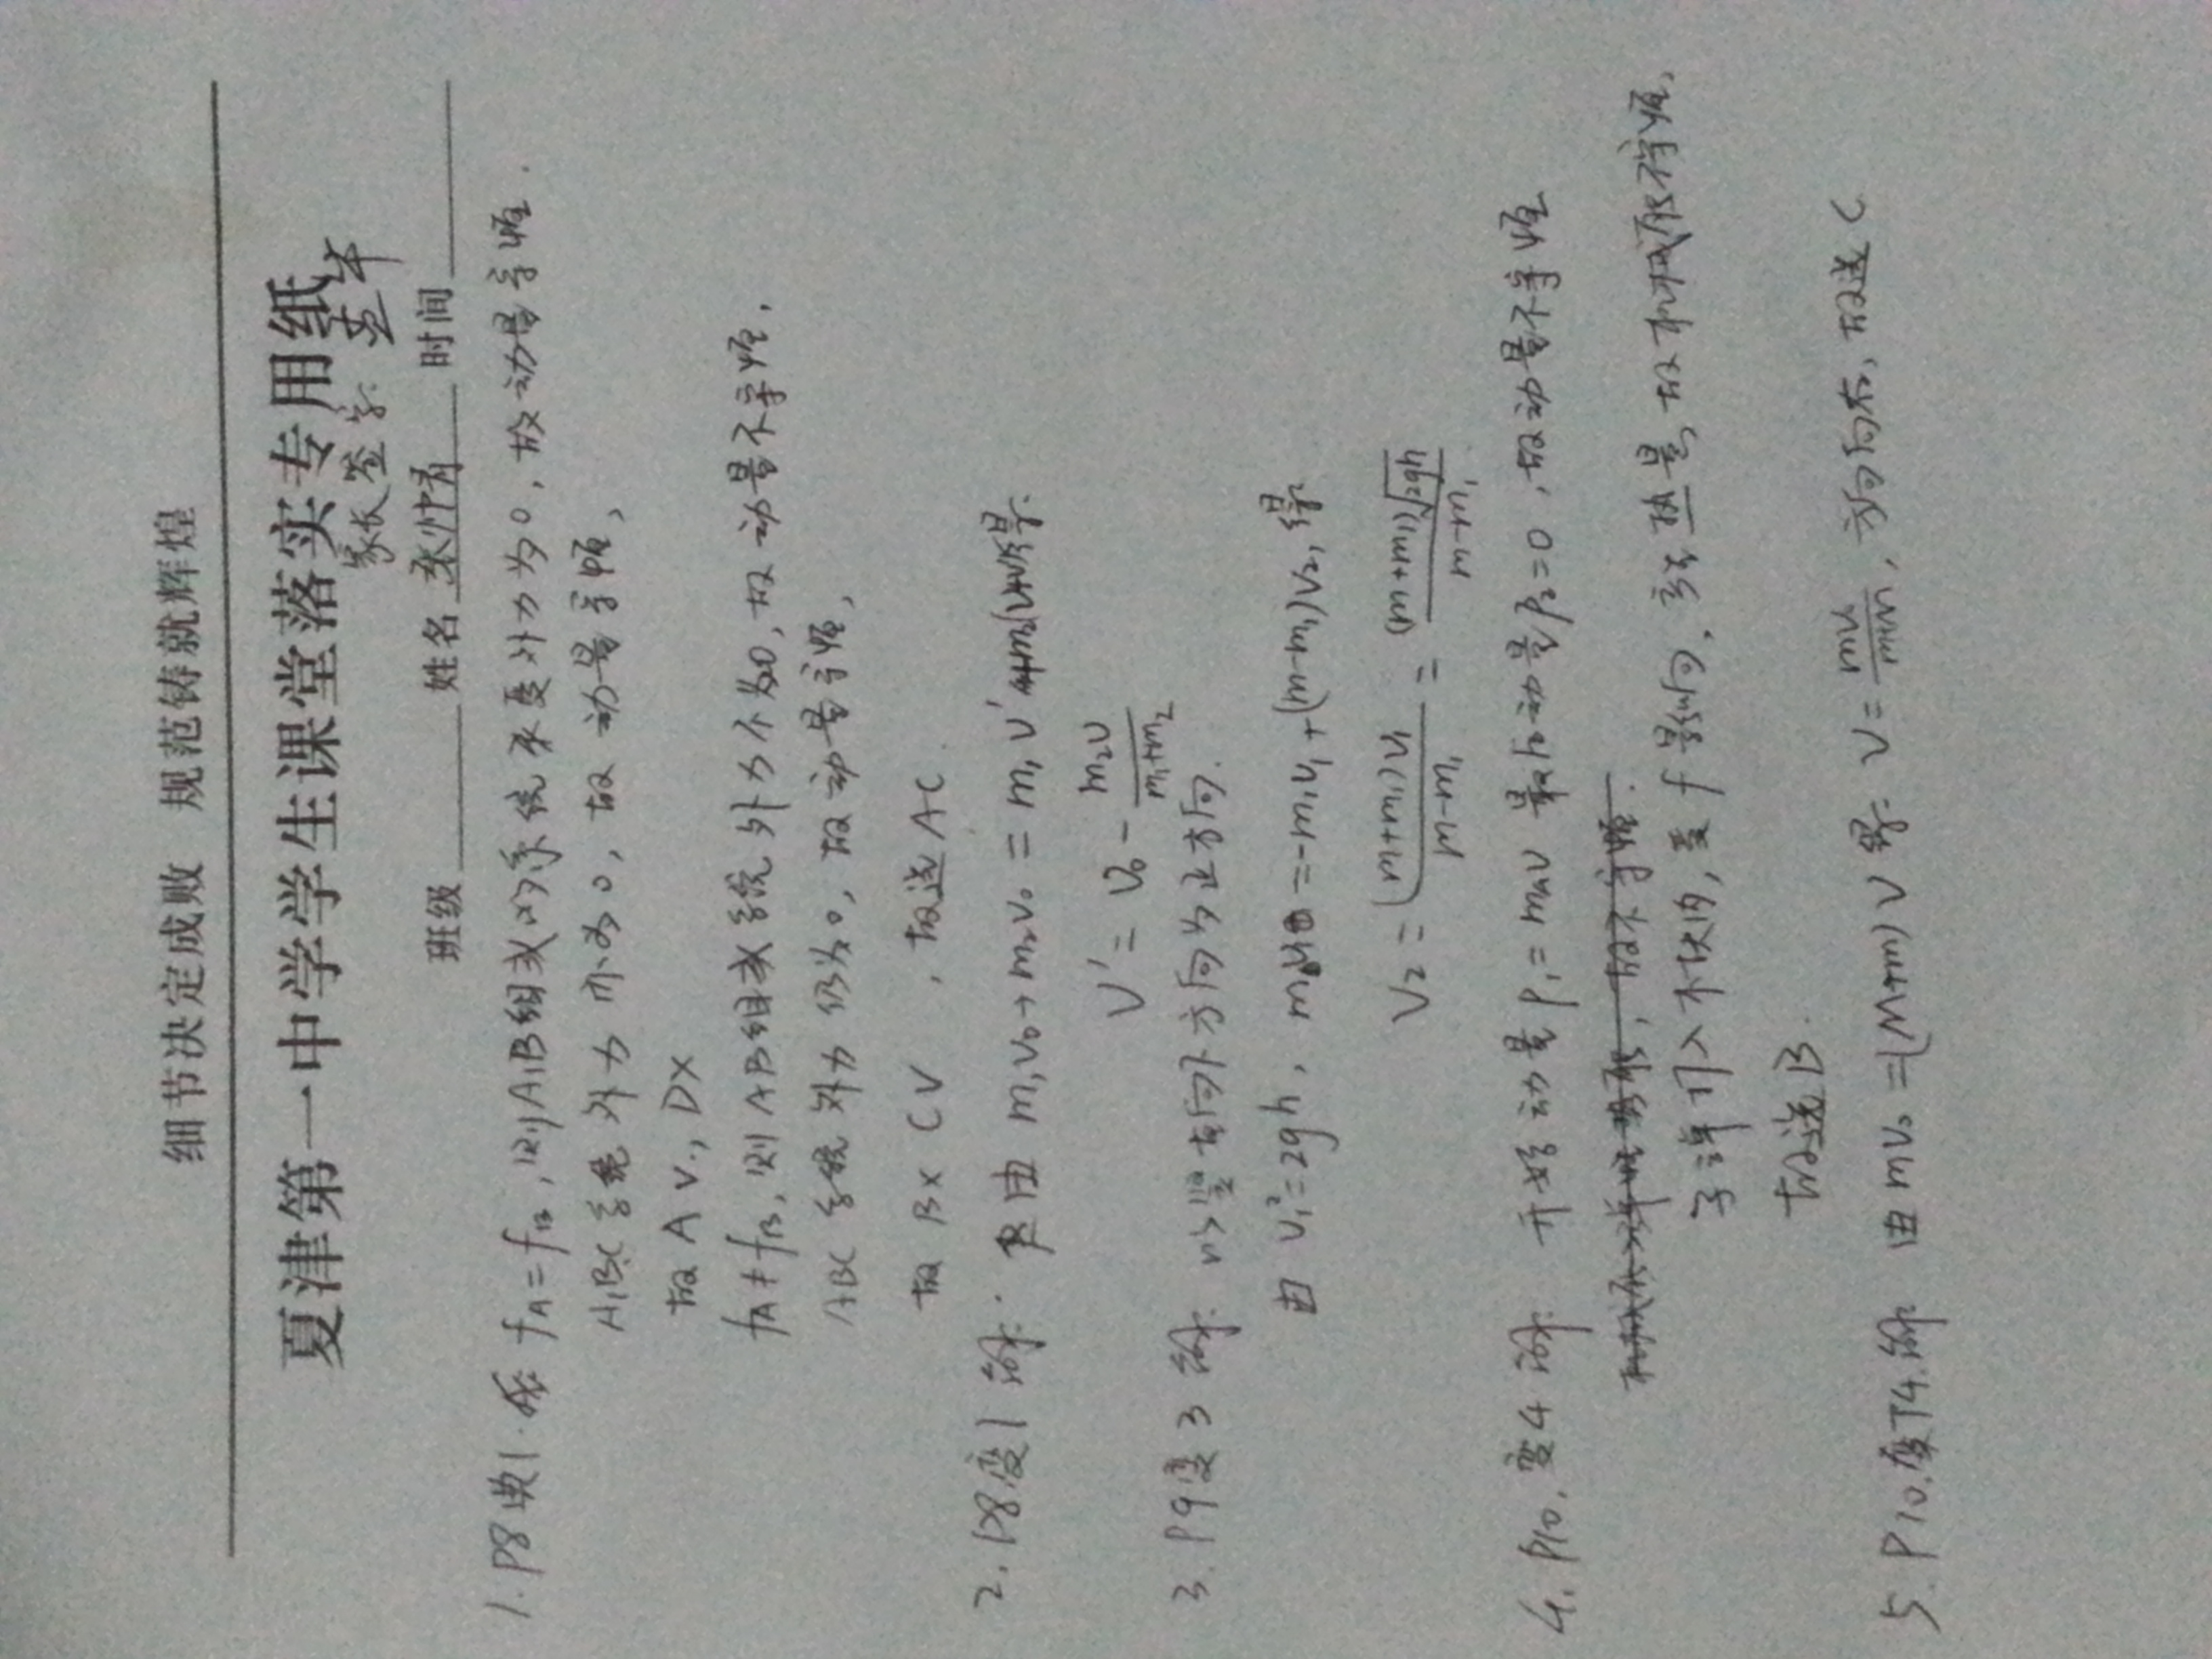 细节决定成败 规范铸就辉煌
夏津第一中学学生课堂落实专用纸
家长签字:
班级 姓名 时间
1.P8典1. fA=fB,则A1B组成的系统不受外力为0,故动量守恒.
A1B1C系统外力亦为0,故动量守恒,
故A√,D×
fA≠fB,则AB组成系统外力不为0,故动量不守恒,
ABC系统外力仍为0,故动量守恒,
故B× C√,故选AC.
2.P8变1 解: 由 m₁v₀+m₂v₀=m₁v'+m₂(v+v')得:
v'=v₀-\frac{m₂v}{m₁+m₂}
3.P9变3 解: 以竖直向下方向为正方向.
由 v₁²=2gh, =-m₁v₁+(m-m₁)v₂,得
v₂=\frac{(m+m₁)v₁}{m-m₁}=\frac{(m+m₁)\sqrt{2gh}}{m-m₁}.
4.P10.变4 解: 开始动量P₁=mv 最后动量P₂=0,故动量不守恒
子弹打入木块内,受f影响,产生热量,故机械能不守恒,
故选B.
5.P10.变T4.解 由mv₀=(M+m)v得:v=\frac{mv₀}{M+m},方向向右,故选C